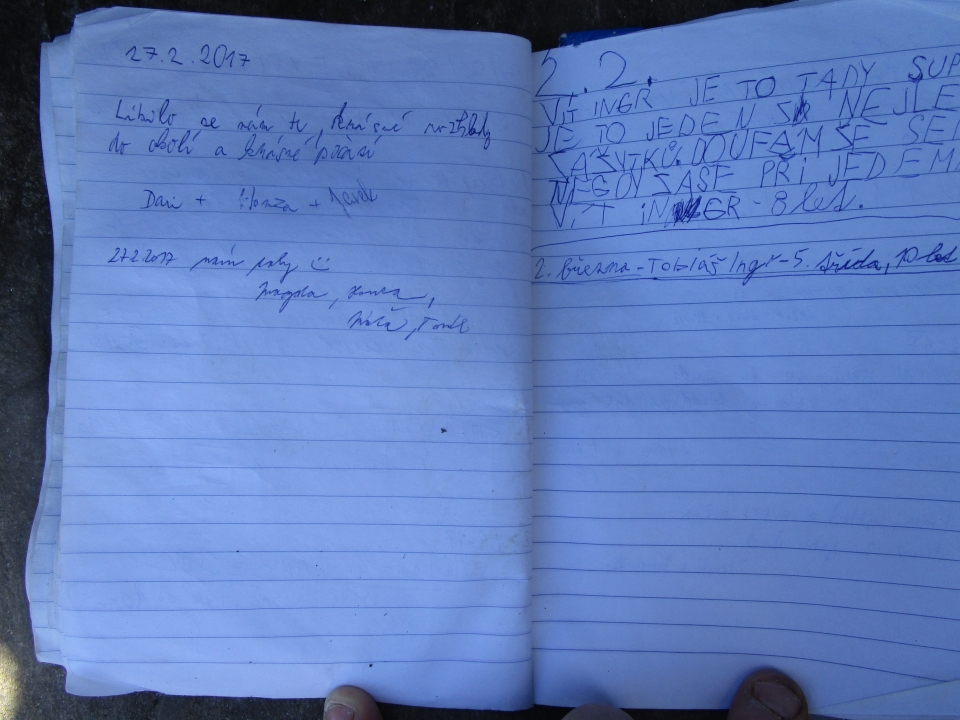 27.2.2017
Líbilo se nám tu, krásné rozhledy
do okolí a krásné počasí
Dan + Honza +
27.2.2017 mám
Magda, Honza,
, Tomík
2. 2.
VÍT INGR JE TO TADY SUP
JE TO JEDEN NEJLE
ZÁŽYTKŮ. DOUFÁM ŽE SE
NĚGDY ZASE PŘI JEDEM
VÍT INGR - 8 let.
2. března - Tobiáš Ingr - 5. třída, 10 let